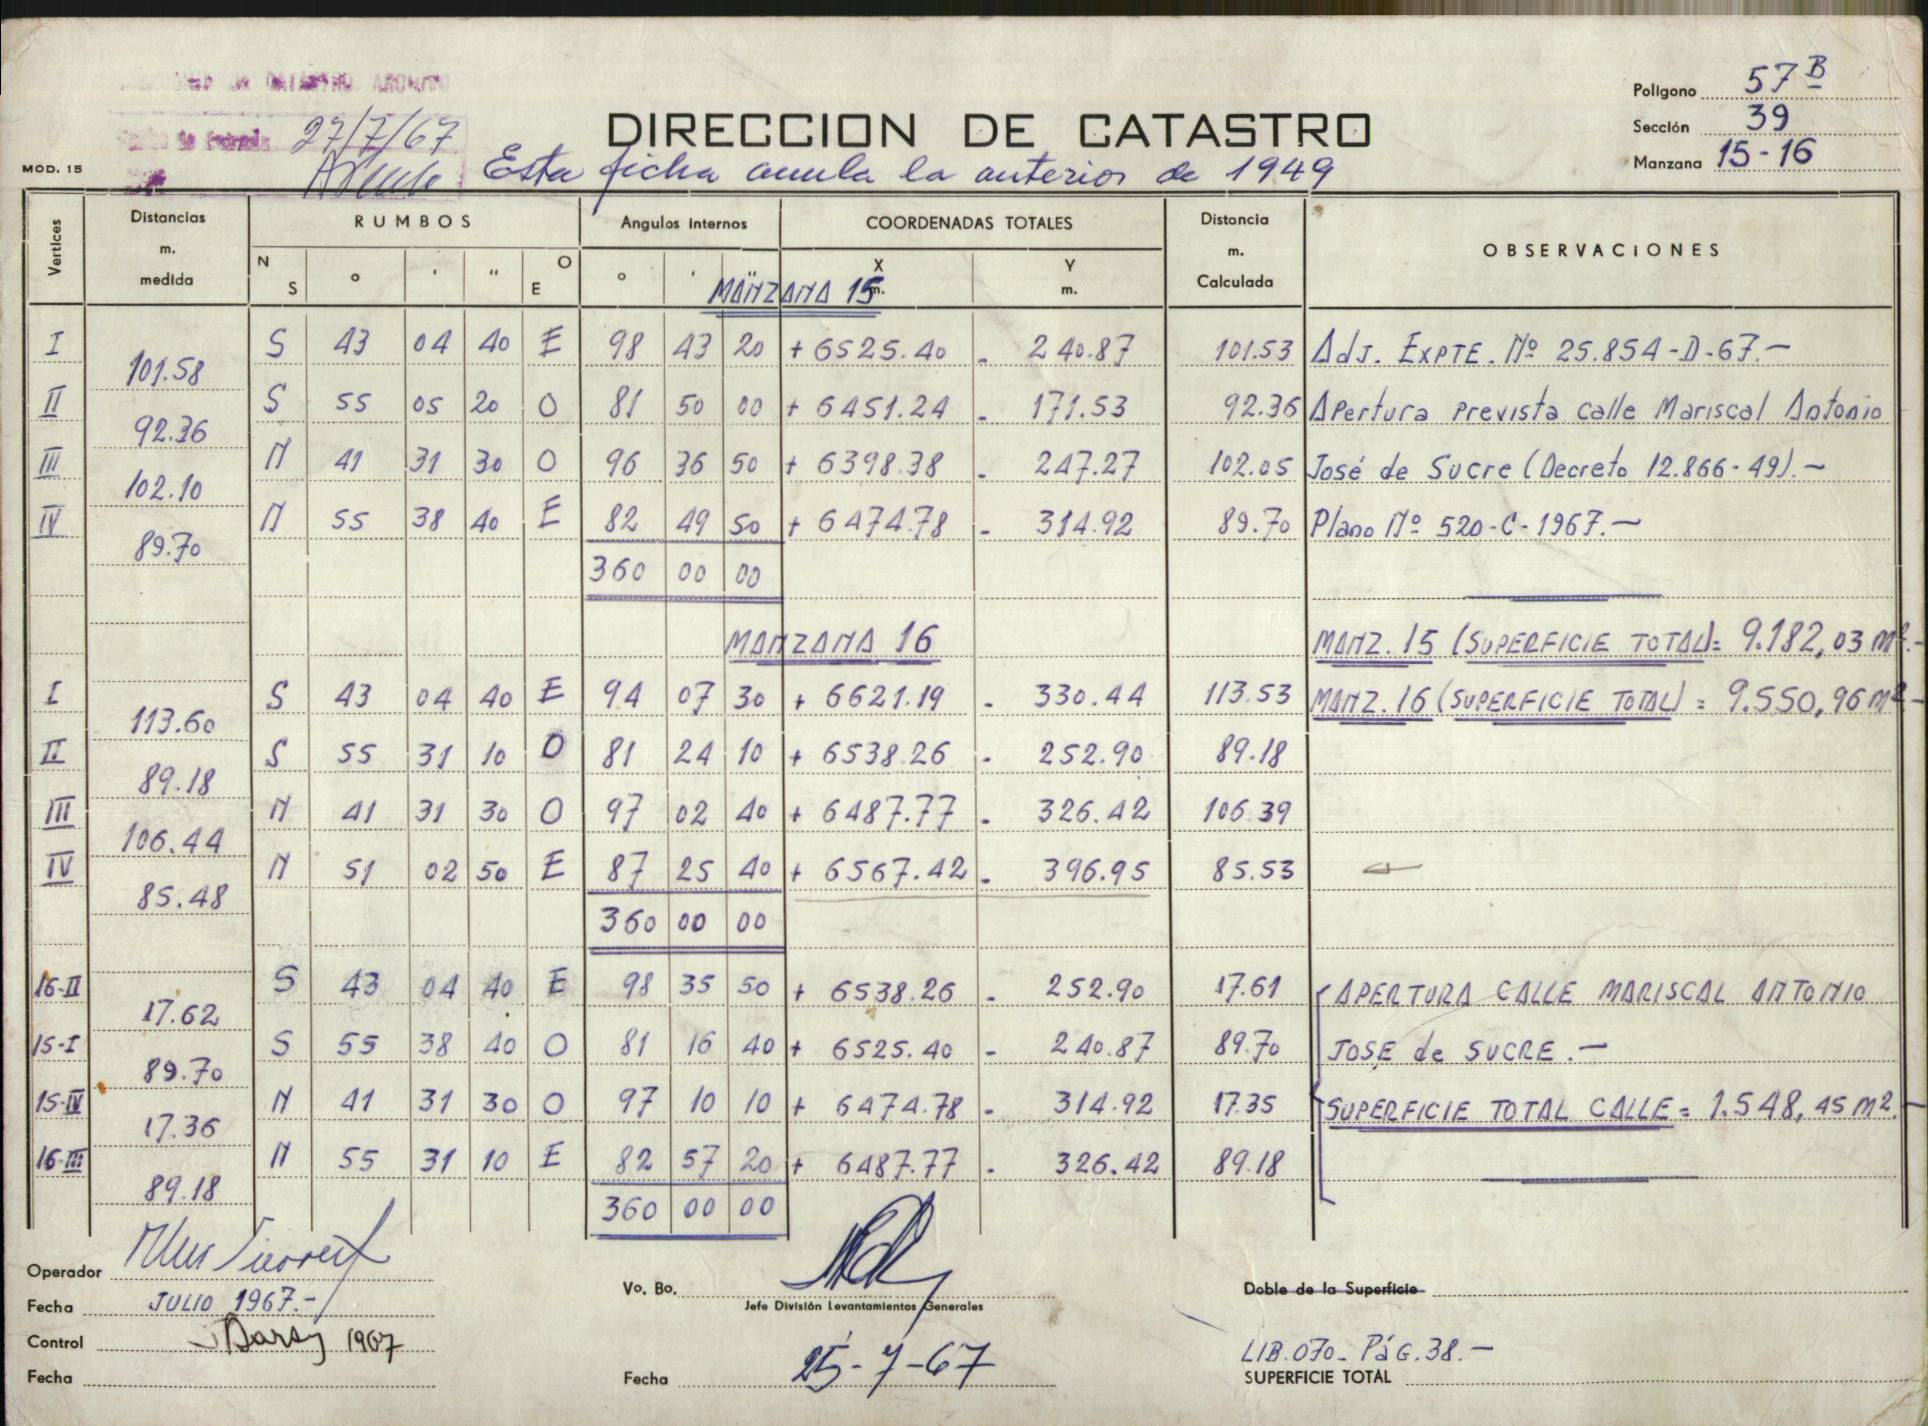 DE CATASTRO
de Entrada 27/7/67
MOD. 15
DIRECCION DE CATASTRO
Esta ficha anula la anterior de 1949
Polígono 57 B
Sección 39
Manzana 15-16
Vertices Distancias m. medida RUMBOS N S ° ' " O E Angulos Internos ° ' " COORDENADAS TOTALES X m. Y m. Distancia m. Calculada OBSERVACIONES
MANZANA 15
I 101.58 S 43 04 40 E 98 43 20 + 6525.40 - 240.87 101.53 Adj. EXPTE. Nº 25.854-D-67.-
II 92.36 S 55 05 20 O 81 50 00 + 6451.24 - 171.53 92.36 Apertura prevista calle Mariscal Antonio
III 102.10 N 41 31 30 O 96 36 50 + 6398.38 - 247.27 102.05 José de Sucre (Decreto 12.866-49).-
IV 89.70 N 55 38 40 E 82 49 50 + 6474.78 - 314.92 89.70 Plano Nº 520-C-1967.-
360 00 00
MANZANA 16 MANZ. 15 (SUPERFICIE TOTAL)= 9.182,03 m².-
I 113.60 S 43 04 40 E 94 07 30 + 6621.19 - 330.44 113.53 MANZ. 16 (SUPERFICIE TOTAL) = 9.550,96 m².-
II 89.18 S 55 31 10 O 81 24 10 + 6538.26 - 252.90 89.18
III 106.44 N 41 31 30 O 97 02 40 + 6487.77 - 326.42 106.39
IV 85.48 N 51 02 50 E 87 25 40 + 6567.42 - 396.95 85.53
360 00 00
16-II 17.62 S 43 04 40 E 98 35 50 + 6538.26 - 252.90 17.61 APERTURA CALLE MARISCAL ANTONIO
15-I 89.70 S 55 38 40 O 81 16 40 + 6525.40 - 240.87 89.70 JOSE de SUCRE.-
15-IV 17.36 N 41 31 30 O 97 10 10 + 6474.78 - 314.92 17.35 SUPERFICIE TOTAL CALLE = 1.548,45 m².-
16-III 89.18 N 55 31 10 E 82 57 20 + 6487.77 - 326.42 89.18
360 00 00
Operador
Fecha JULIO 1967.-
Control 1967
Fecha
Vo. Bo.
Jefe División Levantamientos Generales
Fecha 25-7-67
Doble de la Superficie
LIB.070- Pág.38.-
SUPERFICIE TOTAL